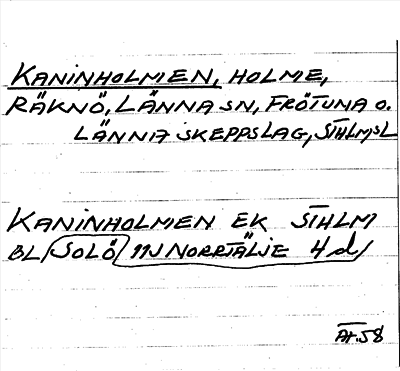 KANINHOLMEN, HOLME,
RÄKNÖ, LÄNNA SN, FRÖTUNA O.
LÄNNA SKEPPSLAG, STHLMSL
KANINHOLMEN EK STHLM
BL SOLÖ 11J NORRTÄLJE 4 d
At.58